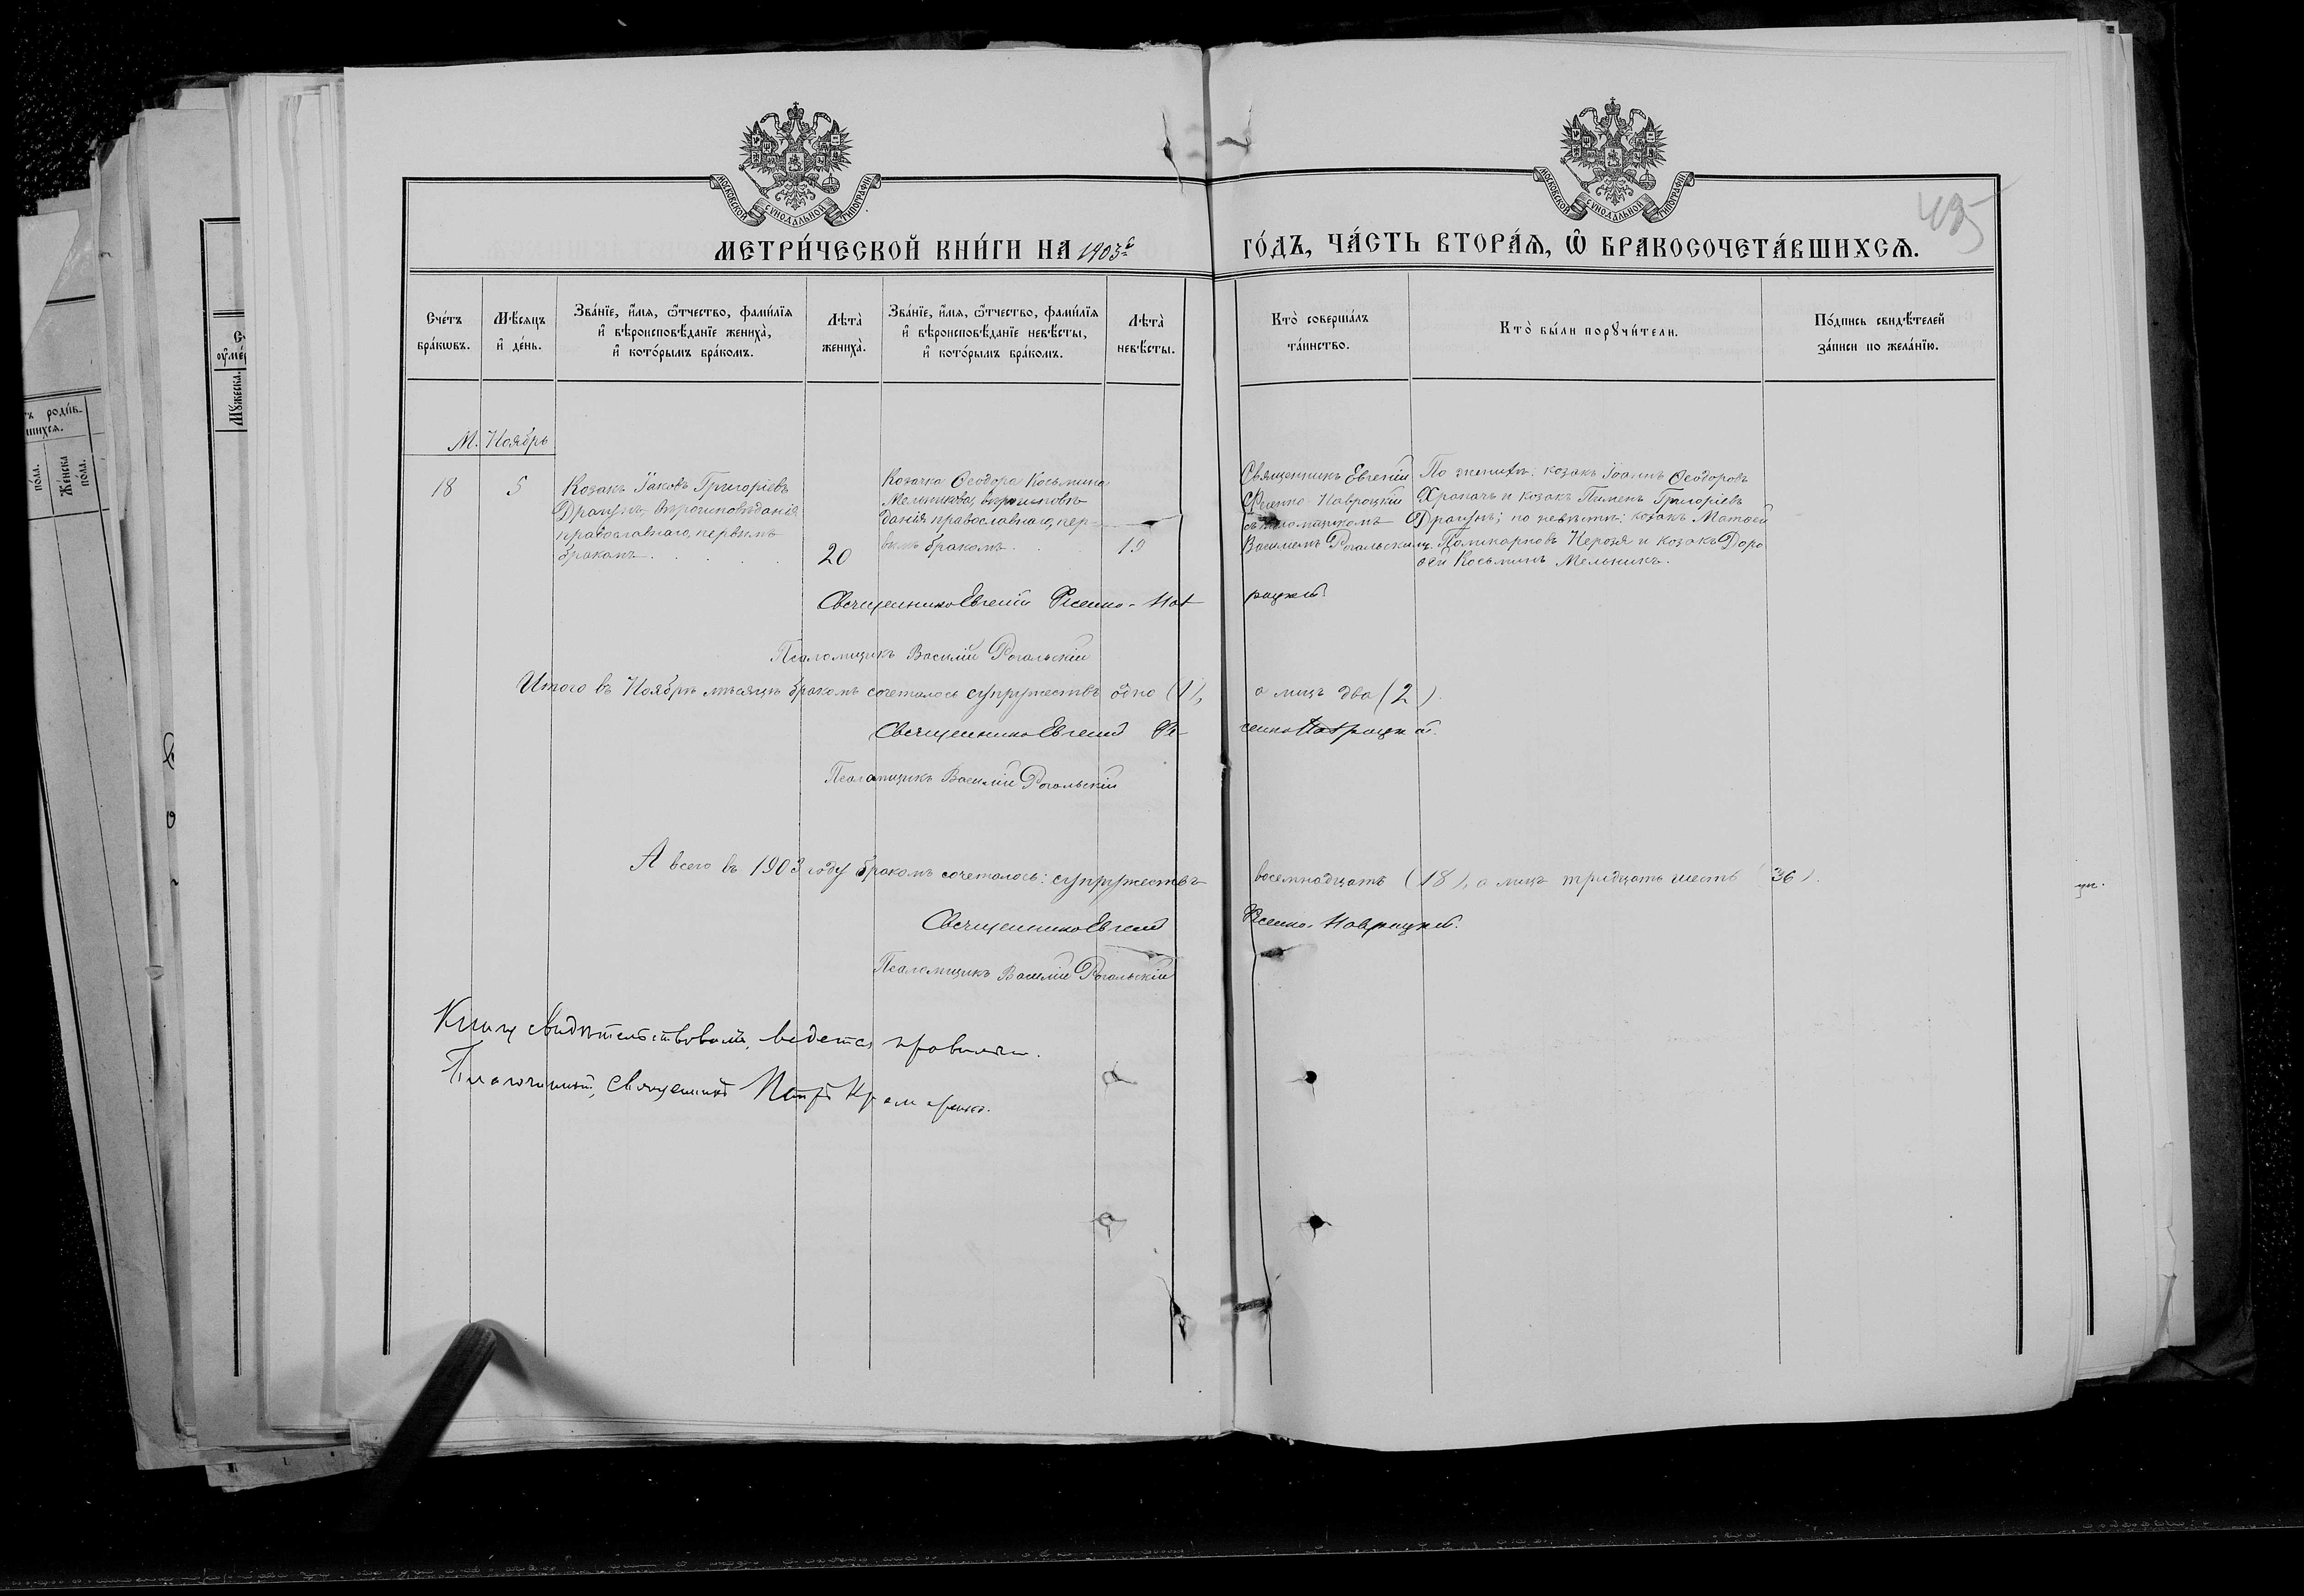 МОСКОВСКОЙ СѴНОДАЛЬНОЙ ТИПОГРАФІИ
МОСКОВСКОЙ СѴНОДАЛЬНОЙ ТИПОГРАФІИ
495
МЕТРИ́ЧЕСКОЙ КНИ́ГИ НА 1903й ГО́ДЪ, ЧА́СТЬ ВТОРА́Ѧ, Ѽ БРАКОСОЧЕТА́ВШИХСѦ.
Сче́тъ бра́кѡвъ.
Мѣ́сяцъ и҆ де́нь.
Зва́нїе, и҆́мѧ, ѻ҆́тчество, фами́лїѧ и҆ вѣроисповѣ́данїе жениха̀, и҆ кото́рымъ бра́комъ.
Лѣта̀ жениха̀.
Зва́нїе, и҆́мѧ, ѻ҆́тчество, фами́лїѧ и҆ вѣроисповѣ́данїе невѣ́сты, и҆ кото́рымъ бра́комъ.
Лѣта̀ невѣ́сты.
Кто̀ соверша́лъ та́инство.
Кто̀ бы́ли порꙋчи́тели.
По́дпись свидѣ́телей за́писи по жела́нїю.
М. Ноябрь
18
5
Козакъ Іаковъ Григоріевъ
Драгунъ, вѣроисповѣданія
православнаго, первымъ
бракомъ.
20
Козачка Ѳеодора Косьмина
Мельникова, вѣроисповѣ-
данія православнаго, пер-
вымъ бракомъ.
19
Священникъ Евгеній
Навроцкій
съ псаломщикомъ
Василіемъ Рогальскимъ.
По женихѣ: козакъ Іоаннъ Ѳеодоровъ
Храпачъ и козакъ Пименъ Григоріевъ
Драгунъ; по невѣстѣ: козакъ Матѳей
Поликарповъ Нерозя и козакъ Доро
ѳей Косьминъ Мельникъ.
Священникъ Евгеній Ѳесенко-Навроцкій
Псаломщикъ Василій Рогальскій
Итого въ Ноябрѣ мѣсяцѣ бракомъ сочеталось супружествъ одно (1), а лицъ два (2).
Священникъ Евгеній Ѳесенко Навроцкій.
Псаломщикъ Василій Рогальскій
А всего въ 1903 году бракомъ сочеталось: супружествъ восемнадцать (18), а лицъ тридцать шесть (36).
Священникъ Евгеній Ѳесенко-Навроцкій.
Псаломщикъ Василій Рогальскій
Книгу свидѣтельствовалъ, ведется правильно.
Благочинный, Священникъ Петръ Крамаренко.
ъ роди́в-
шихсѧ.
по́ла.
Же́нска по́ла.
Мꙋ́жеска.